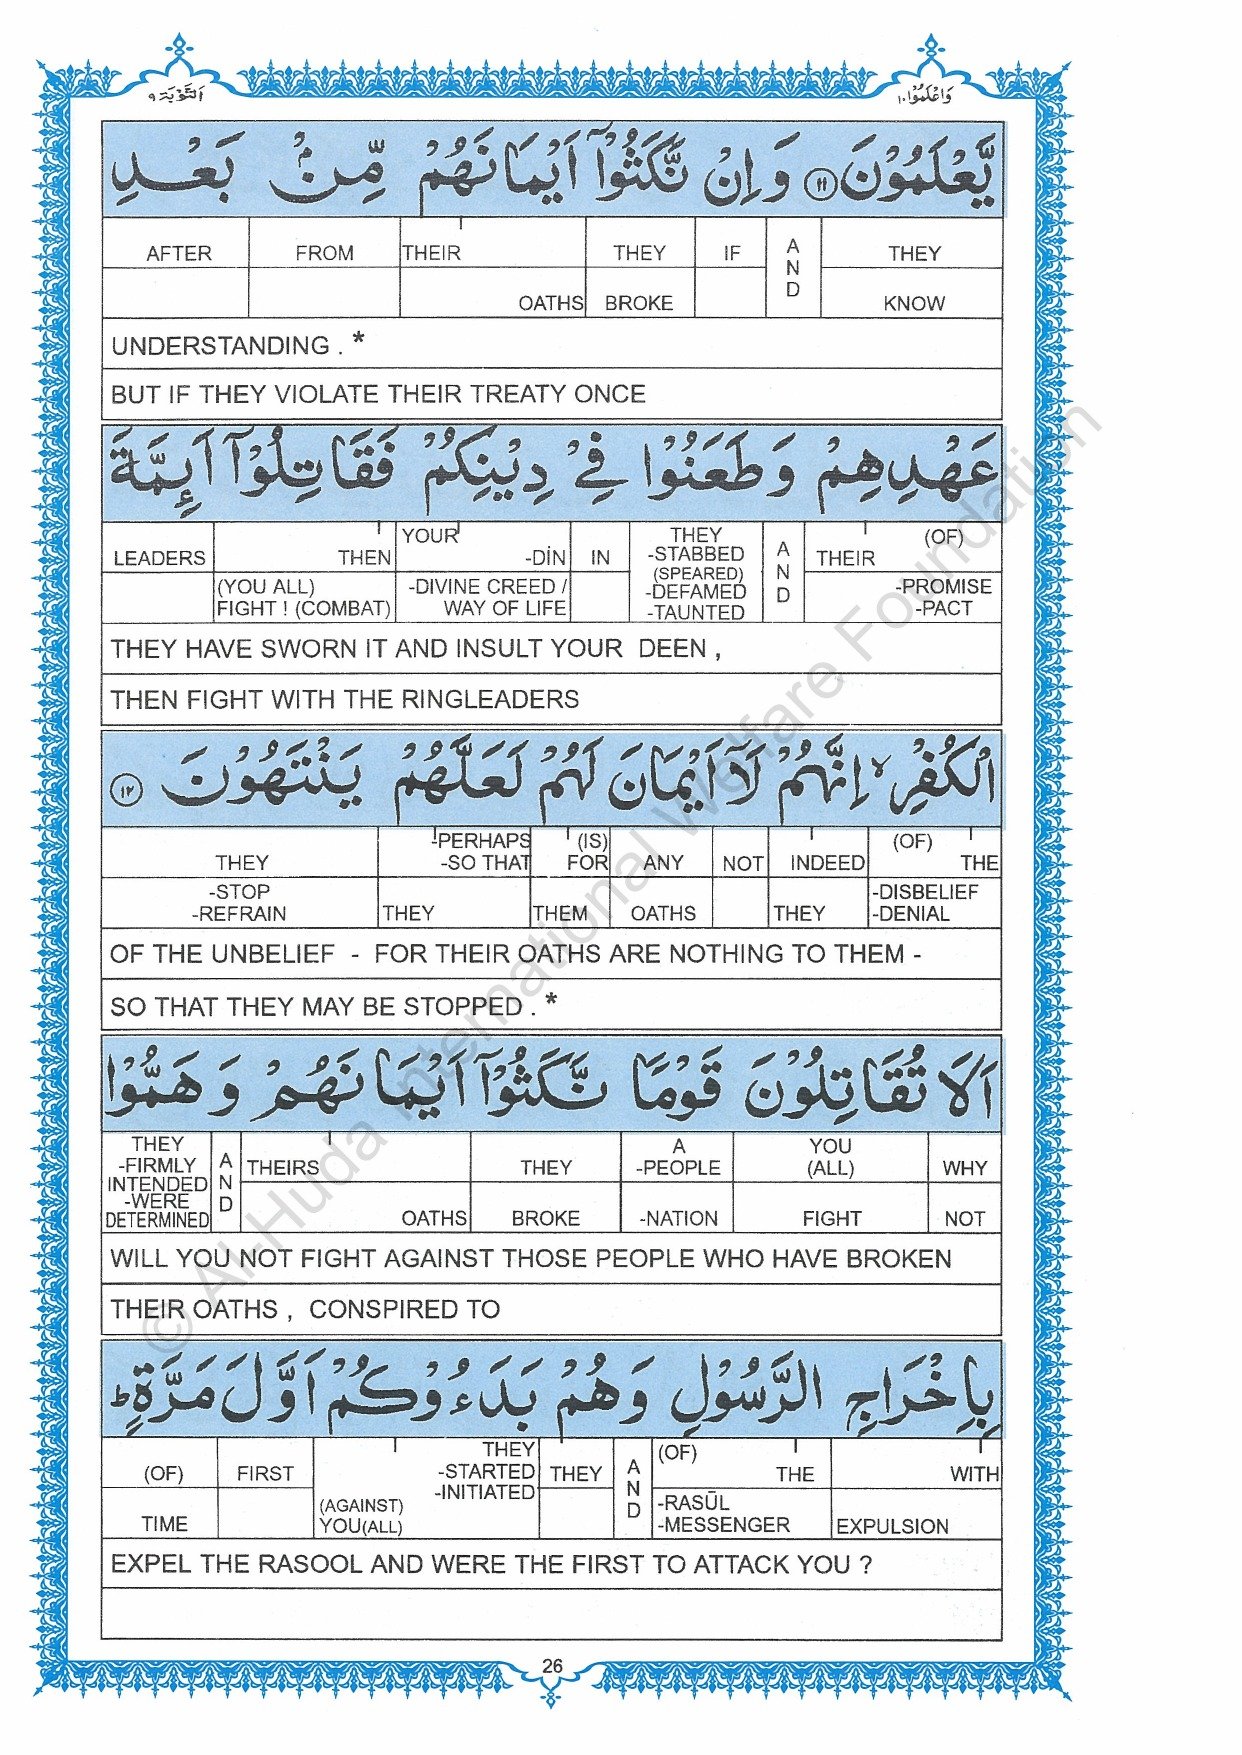 التوبة ٩
واعلموا ١٠
يَّعْلَمُوْنَ ١١ وَاِنْ نَّكَثُوْۤا اَيْمَانَهُمْ مِّنْۢ بَعْدِ
AFTER FROM THEIR THEY IF AND THEY
OATHS BROKE KNOW
UNDERSTANDING . *
BUT IF THEY VIOLATE THEIR TREATY ONCE
عَهْدِهِمْ وَطَعَنُوْا فِيْ دِيْنِكُمْ فَقَاتِلُوْۤا اَئِمَّةَ
LEADERS THEN YOUR -DİN IN THEY -STABBED (SPEARED) -DEFAMED -TAUNTED AND THEIR (OF)
(YOU ALL) FIGHT ! (COMBAT) -DIVINE CREED / WAY OF LIFE -PROMISE -PACT
THEY HAVE SWORN IT AND INSULT YOUR DEEN ,
THEN FIGHT WITH THE RINGLEADERS
الْكُفْرِ ۙ اِنَّهُمْ لَاۤ اَيْمَانَ لَهُمْ لَعَلَّهُمْ يَنْتَهُوْنَ ١٢
THEY -PERHAPS -SO THAT (IS) FOR ANY NOT INDEED (OF) THE
-STOP -REFRAIN THEY THEM OATHS THEY -DISBELIEF -DENIAL
OF THE UNBELIEF - FOR THEIR OATHS ARE NOTHING TO THEM -
SO THAT THEY MAY BE STOPPED . *
اَلَا تُقَاتِلُوْنَ قَوْمًا نَّكَثُوْۤا اَيْمَانَهُمْ وَهَمُّوْا
THEY -FIRMLY INTENDED -WERE DETERMINED AND THEIRS THEY A -PEOPLE YOU (ALL) WHY
OATHS BROKE -NATION FIGHT NOT
WILL YOU NOT FIGHT AGAINST THOSE PEOPLE WHO HAVE BROKEN
THEIR OATHS , CONSPIRED TO
بِاِخْرَاجِ الرَّسُوْلِ وَهُمْ بَدَءُوْكُمْ اَوَّلَ مَرَّةٍ ط
(OF) FIRST THEY -STARTED -INITIATED THEY AND (OF) THE WITH
TIME (AGAINST) YOU(ALL) -RASŪL -MESSENGER EXPULSION
EXPEL THE RASOOL AND WERE THE FIRST TO ATTACK YOU ?
26
© Al-Huda International Welfare Foundation